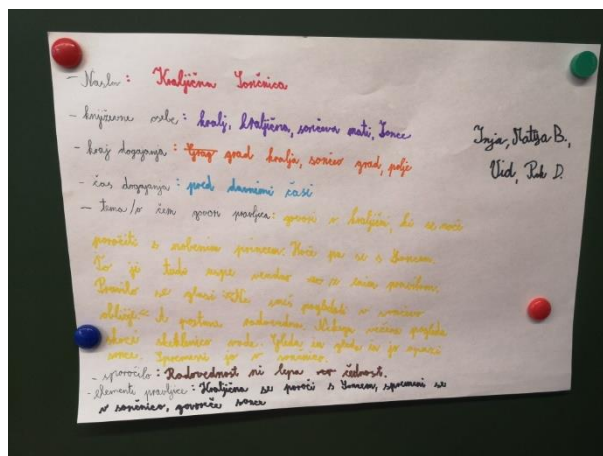 - Naslov: Kraljična Sončnica
- književne osebe: kralj, kraljična, sončeva mati, Sonce
- kraj dogajanja: grad kralja, sončev grad, polje
- čas dogajanja: pred davnimi časi
- tema/o čem govori pravljica: govori o kraljični, ki se noče
poročiti z nobenim princem. Hoče pa se s Soncem.
To ji tudi uspe vendar z enim pravilom.
Pravilo se glasi: Ne smeš pogledati v sončevo
obličje. A postane radovedna. Nekega večera pogleda
skozi stekleničko vode. Gleda in gleda in jo opazi
sonce. Spremeni jo v sončnico.
- sporočilo: Radovednost ni lepa čednost.
- elementi pravljice: Kraljična se poroči s Soncem, spremeni se
v sončnico, govoreče sonce
Inja, Matija B.,
Vid, Rok D.